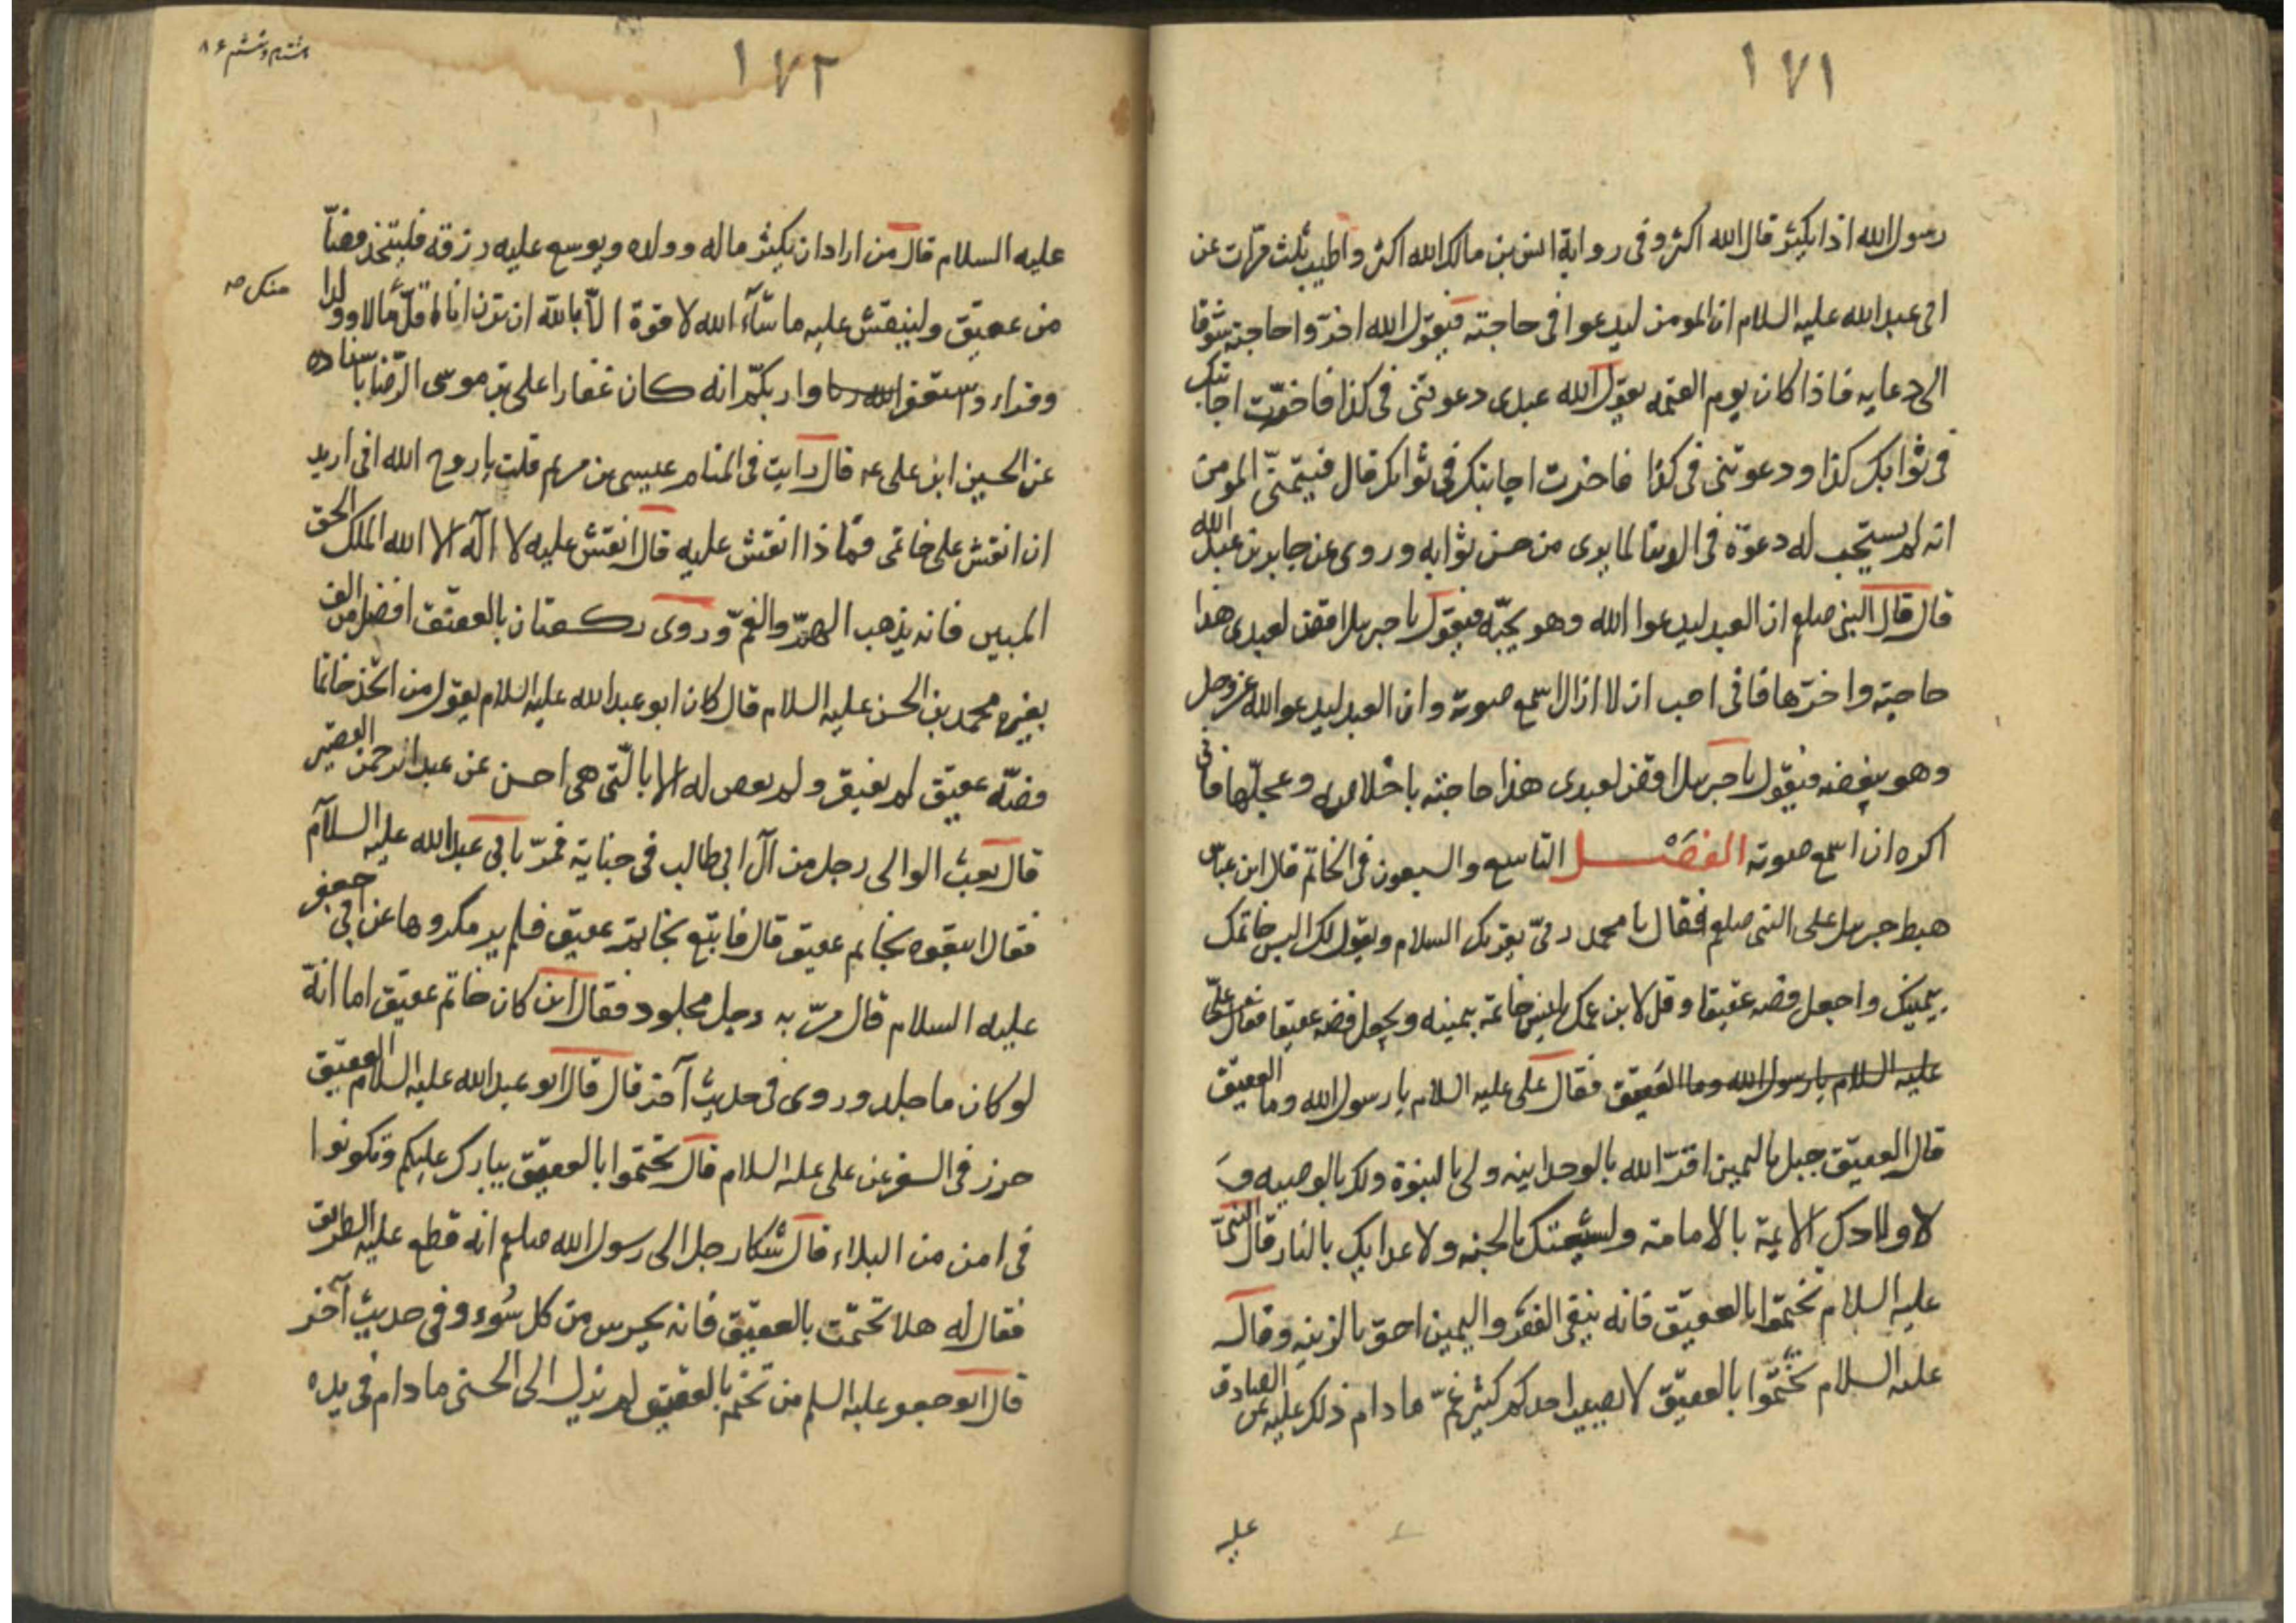 ١٧١
رسول الله اذا يكثر قال الله اكثر وفى رواية انس بن مالك الله اكثر واطيب ثلث مرّات عن
ابى عبد الله عليه السلام ان المومن ليدعوا فى حاجته فيقول الله اخرّوا حاجته شوقا
الى دعايه فاذا كان يوم القيمه يقول الله عبدى دعوتنى فى كذا فاخرّت اجابتك
فى ثوابك كذا ودعوتنى فى كذا فاخرت اجابتك فى ثوابك قال فيتمنّى المومن
انه لم يستجب له دعوة فى الدنيا لما يرى من حسن ثوابه وروى عن جابر بن عبد الله
قال قال النبى صلعم ان العبد ليدعوا الله وهو يحبّه فيقول يا جبرىل اقض لعبدى هذا
حاجته واخرّها فانى احب ان لا ازال اسمع صوته وان العبد ليدعو الله عز وجل
وهو يبغضه فيقول يا جبرىل اقض لعبدى هذا حاجته باخلاصه وعجلّها فانى
اكره ان اسمع صوته الفصل التاسع والسبعون فى الخاتم قال ابن عباس
هبط جبرىل على النبى صلعم فقال يا محمد ربىّ يقرىك السلام ويقول لك البس خاتمك
بيمينك واجعل فصّه عقيقا وقل لابن عمك يلبس خاتمه بيمينه ويجعل فصّه عقيقا فقال على
عليه السلام يا رسول الله وما العقيق فقال على عليه السلام يا رسول الله وما العقيق
قال العقيق جبل باليمين اقرّ الله بالوحدانيه ولى بالنبوة ولك بالوصيه وَ
لاولادك الائمة بالامامة ولشيعتك بالجنه ولاعدايك بالنار قال النبىّ
عليه السلام تختموا بالعقيق فانه ينفى الفقر واليمين احق بالزينه وقال
عليه السلام تختّموا بالعقيق لا يصيب احدكم كثير غمّ ما دام ذلك عليه عن الصادق
عليه
١٧٢
هشتاد وششم ٨٦
عليه السلام قال من اراد ان يكثر ماله وولده ويوسع عليه رزقه فليتخذ فصّاً
من عقيق ولينقش عليه ما شآء الله لا قوة الاّ بالله ان ترن انا اقلّ مالا وولدا
منك صه
وقراء واستغفر الله ربنا وا ربكم انه كان غفارا على بن موسى الرّضا باسناده
عن الحسين ابن على عه قال رايت فى المنام عيسى بن مريم قلت يا روح الله انى اريد
ان انقش على خاتمى فماذا انقش عليه قال انقش عليه لا اله الا الله الملك الحق
المبين فانه يذهب الهمّ والغمّ وروى ركعتان بالعقيق افضل من الف
بغيره محمد بن الحسن عليه السلام قال كان ابو عبد الله عليه السلام يقول من اتخذ خاتما
فصّه عقيق لم يفتقر ولم يقض له الا بالّتى هى احسن عن عبد الرحمن القصير
قال بعث الوالى رجل من آل ابى طالب فى جناية فمرّ بابى عبد الله عليه السلآم
فقال اتبعوه بخاتم عقيق قال فاتبّع بخاتم عقيق فلم ير مكروها عن ابى جعفر
عليه السلام قال مرّ به رجل مجلود فقال اين كان خاتم عقيق اما انّه
لو كان ما جلد وروى فى حديث آخر قال قال ابو عبد الله عليه السلام العقيق
حرز فى السفر عن على عليه السلام قال تختموا بالعقيق يبارك عليكم وتكونوا
فى امن من البلاء قال شكا رجل الى رسول الله صلعم انه قطع عليه الطريق
فقال له هلا تختّمت بالعقيق فانه يحرس من كل سُوء وفى حديث آخر
قال ابو جعفر عليه السلم من تختم بالعقيق لم يزل الى الحسنى ما دام فى يده